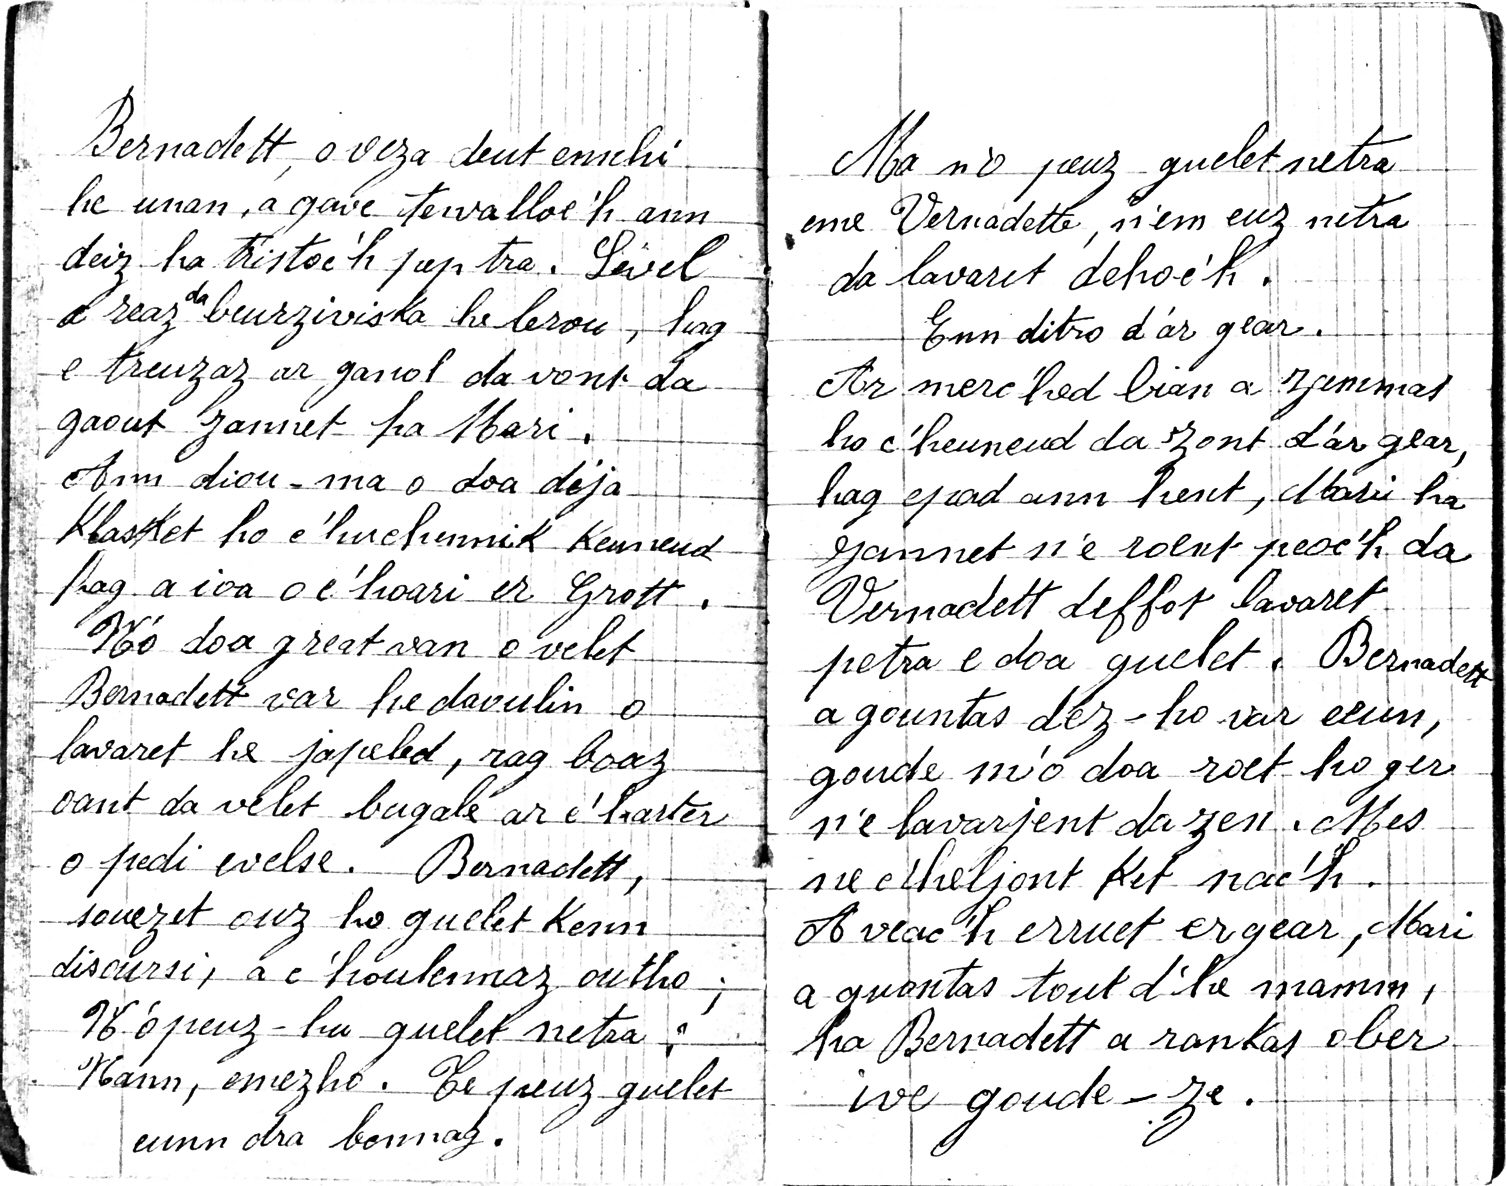 Bernadett, o veza deut ennhi
he unan, a gave tewalloc'h ann
deiz ha tristoc'h pep tra. Sevel
a reaz da beurziviska he lerou, hag
e treuzaz ar ganol da vont da
gaout Jannet ha Mari.
Ann diou-ma o doa déja
Klasket ho c'huchennik Keuneud
hag a ioa o c'hoari er Grott.
N'o doa great van o velet
Bernadett var he daoulin o
lavaret he japeled, rag boaz
oant da velet bugale ar c'harter
o pedi evelse. Bernadett,
souezet ouz ho guelet Kenn
disoursi, a c'houlennaz outho;
N'o peuz-hu guelet netra?
Nann, emezho. Te peuz guelet
eunn dra bennag.
Ma n'o peuz guelet netra
eme Vernadette, n'em euz netra
da lavaret dehoc'h.
Enn distro d'ar gear.
Ar merc'hed bian a zammas
ho c'heuneud da zont d'ar gear,
hag epad ann hent, Mari ha
Jannet n'e roent peoc'h da
Vernadett deffot lavaret
petra e doa guelet. Bernadett
a gountas dez-ho var eeun,
goude m'o doa roet ho ger
n'e lavarjent da zen. Mes
ne c'heljont Ket nac'h.
A veac'h erruet er gear, Mari
a guontas tout d'he mamm,
ha Bernadett a rankas ober
ive goude-ze.